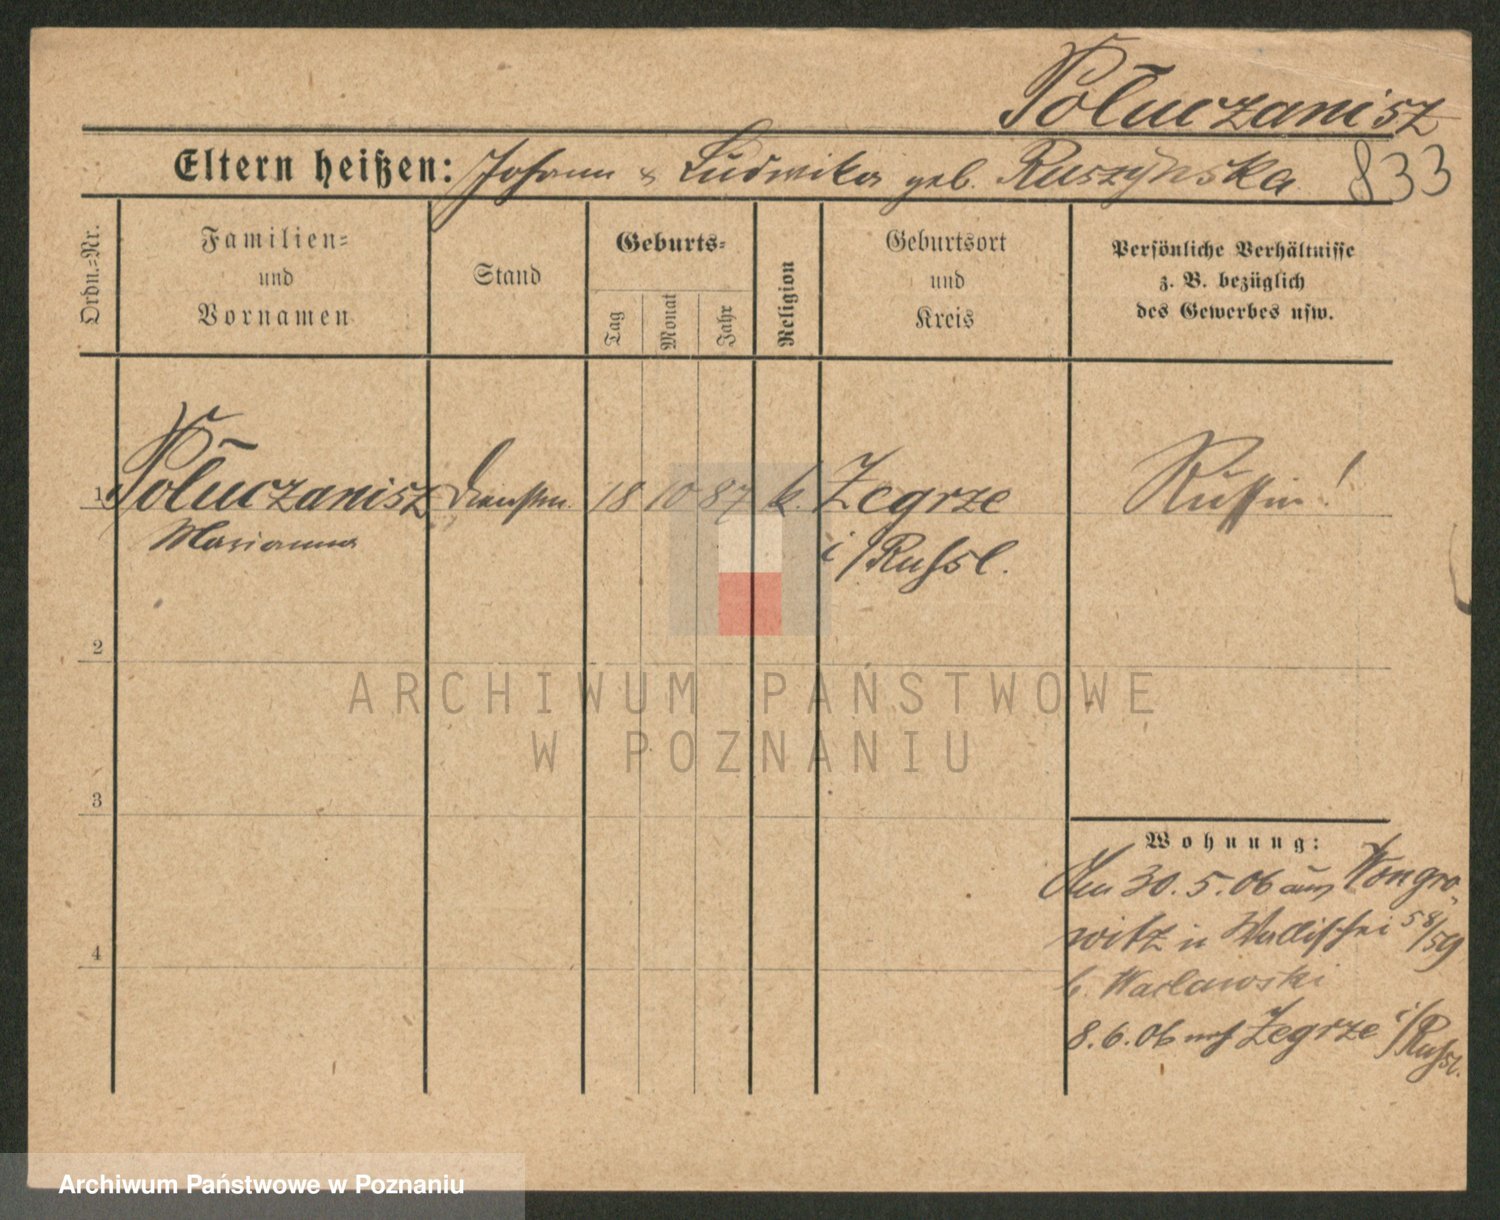 Połuczanisz
Eltern heißen: Johann & Ludwika geb. Ruszyńska 833
Ordn.-Nr.
Familien-
und
Vornamen
Stand
Geburts-
Tag
Monat
Jahr
Religion
Geburtsort
und
Kreis
Persönliche Verhältnisse
z. B. bezüglich
des Gewerbes usw.
1 Połuczanisz Dienstm. 18 10 87 k. Zegrze Russin!
Marianna i/Russl.
2
3
4
Wohnung:
Am 30.5.06 aus Wongro-
witz n Wallischei 58/59
b. Wacławski
8.6.06 nach Zegrze i/Russl.
ARCHIWUM PAŃSTWOWE
W POZNANIU
Archiwum Państwowe w Poznaniu